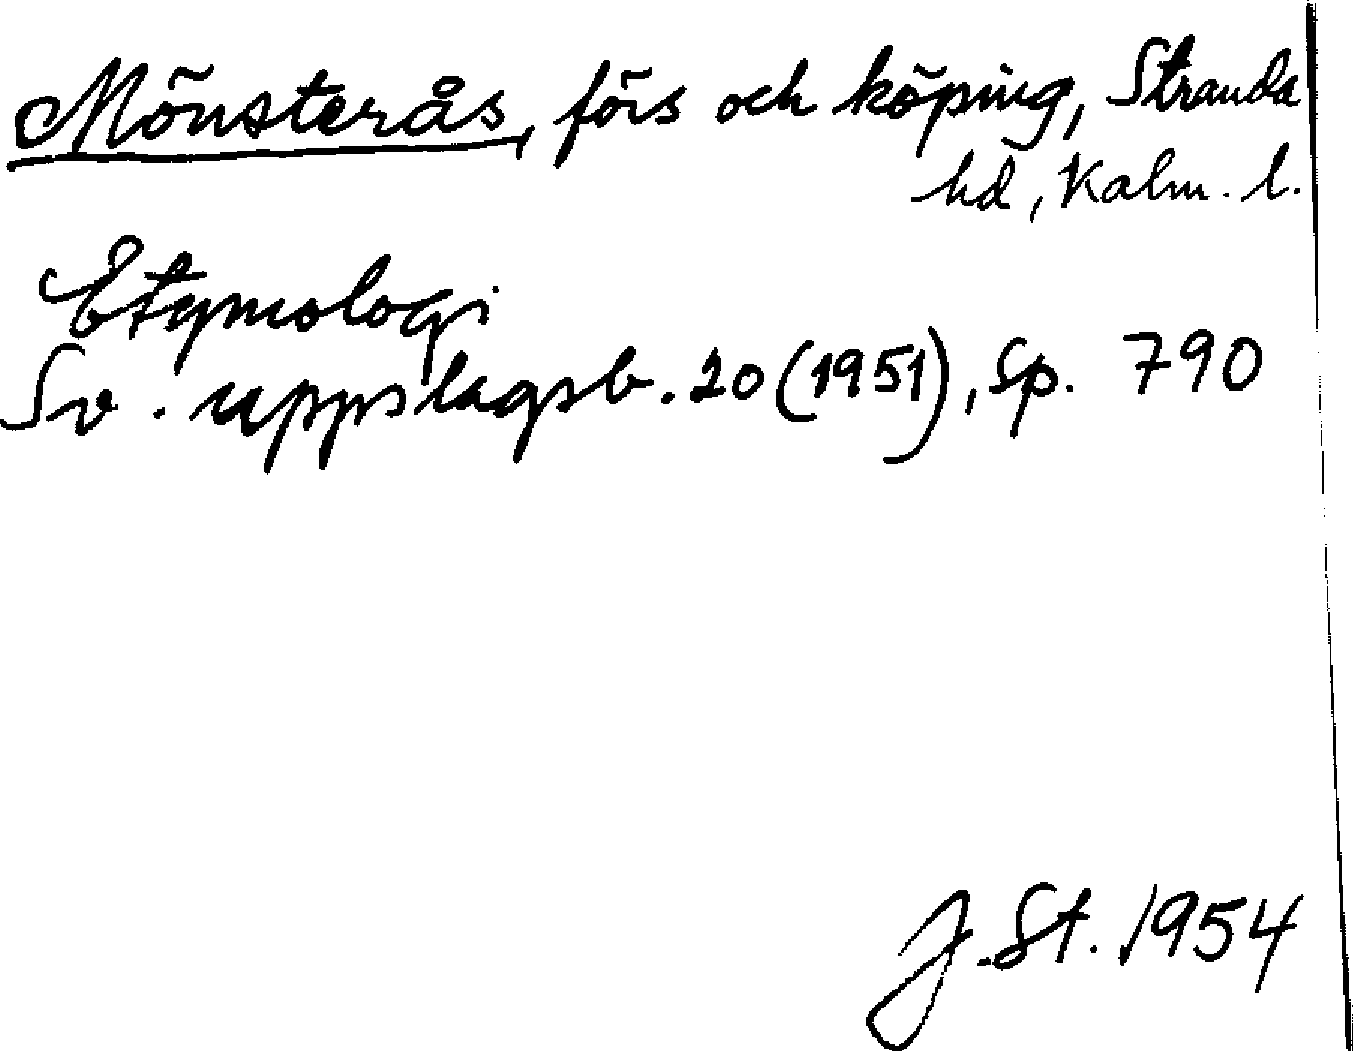 Mönsterås, förs och köping, Stranda
hd, Kalm. l.
Etymologi
Sv. uppslagsb. 20 (1951), Sp. 790
J. St. 1954